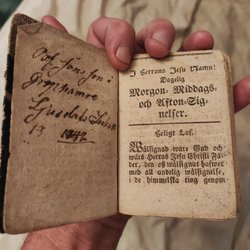 Olof Jönsson i
Grop hamre
Ljusdahls Socken
13 1842
I HErrans JEsu Namn!
Dagelig
Morgon- Middags-
och Afton-Sig-
nelser.
Heligt Lof.
Wälsignad ware Gud och
wårs HErras JEsu Christi Fa-
der, den oß wälsignat hafwer
med all andelig wälsignelse,
i de himmelska ting genom